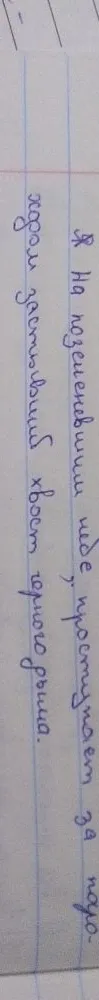 Я На позеленевшим небе, проступает за паро-
ходом застывший хвост черного дыма.